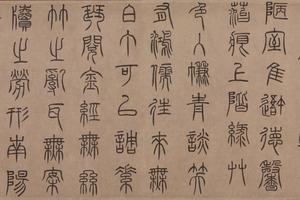 陋室惟吾德馨
苔痕上階綠艸
色入簾青談笑
有鴻儒往來無
白丁可以調素
琴閱金經無絲
竹之亂耳無案
牘之勞形南陽